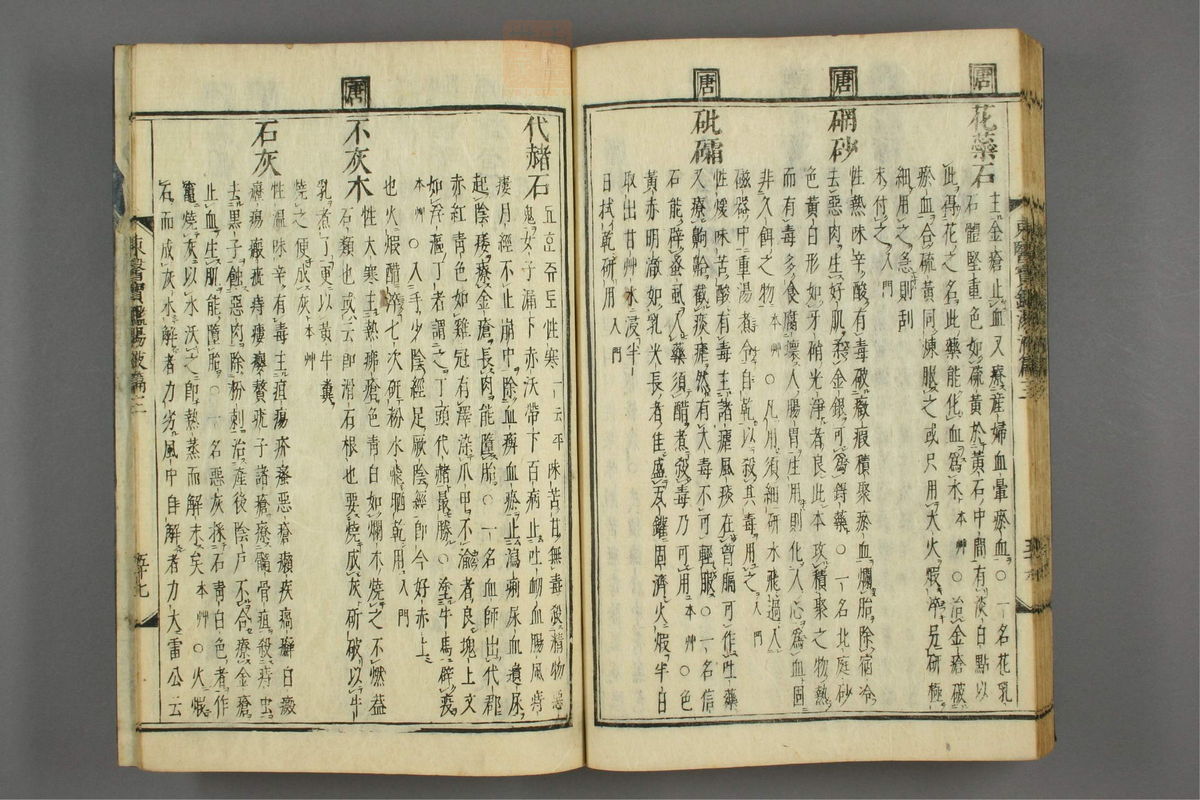 唐
花蘂石
主金瘡止血又療産婦血暈瘀血○一名花乳
石體堅重色如硫黃於黃石中間有淡白點以
此得花之名此藥能化血爲水本艸○治金瘡破
瘀血合硫黃同煉服之或只用大火煆淬另研極
細用之急則刮
末付之入門
唐
硇砂
性熱味辛酸有毒破癥瘕積聚瘀血爛胎除宿冷
去惡肉生好肌柔金銀可爲銲藥○一名北庭砂
色黃白形如牙硝光淨者良此本攻積聚之物熱
而有毒多食腐壞人腸胃生用則化人心爲血固
非久餌之物本艸○凡用須細研水飛過入
磁器中重湯煮令自乾以殺其毒用之入門
唐
砒礵
性煖味苦酸有毒主諸瘧風痰在胷膈可作吐藥
又療齁䶎截痰瘧然有大毒不可輕服○一名信
石能辟蚤蝨入藥須醋煮殺毒乃可用本艸○色
黃赤明澈如乳尖長者佳盛瓦鑵固濟火煆半日
取出甘艸水浸半
日拭乾研用入門
代赭石
性寒一云平味苦甘無毒殺精物惡
鬼女子漏下赤沃帶下百病止吐衄血腸風痔
瘻月經不止崩中除血痺血瘀止瀉痢尿血遺尿
起陰痿療金瘡長肉能墮胎○一名血師出代郡
赤紅靑色如雞冠有澤染爪甲不渝者良塊上文
如浮漚丁者謂之丁頭代赭最勝○塗牛馬辟疫
本艸○入手少陰經足厥陰經卽今好赤土
也火煆醋淬七次硏粉水飛晒乾用入門
唐
不灰木
性大寒主熱疿瘡色靑白如爛木燒之不燃盖
石類也或云卽滑石根也要燒成灰斫破以牛
乳煮了更以黃牛糞
燒之便成灰本艸
石灰
性溫味辛有毒主疽瘍疥瘙惡瘡癩疾癘癬白癜
癧瘍瘢疵痔瘻癭贅疣子諸瘡療髓骨疽殺痔虫
去黑子蝕惡肉除粉刺治産後陰戶不合療金瘡
止血生肌能墮胎○一名惡灰採石靑白色者作
竈燒灰以水沃之卽熱蒸而解末矣本艸○火煆
石而成灰水解者力劣風中自解者力大雷公云
東醫寶鑑湯液篇三